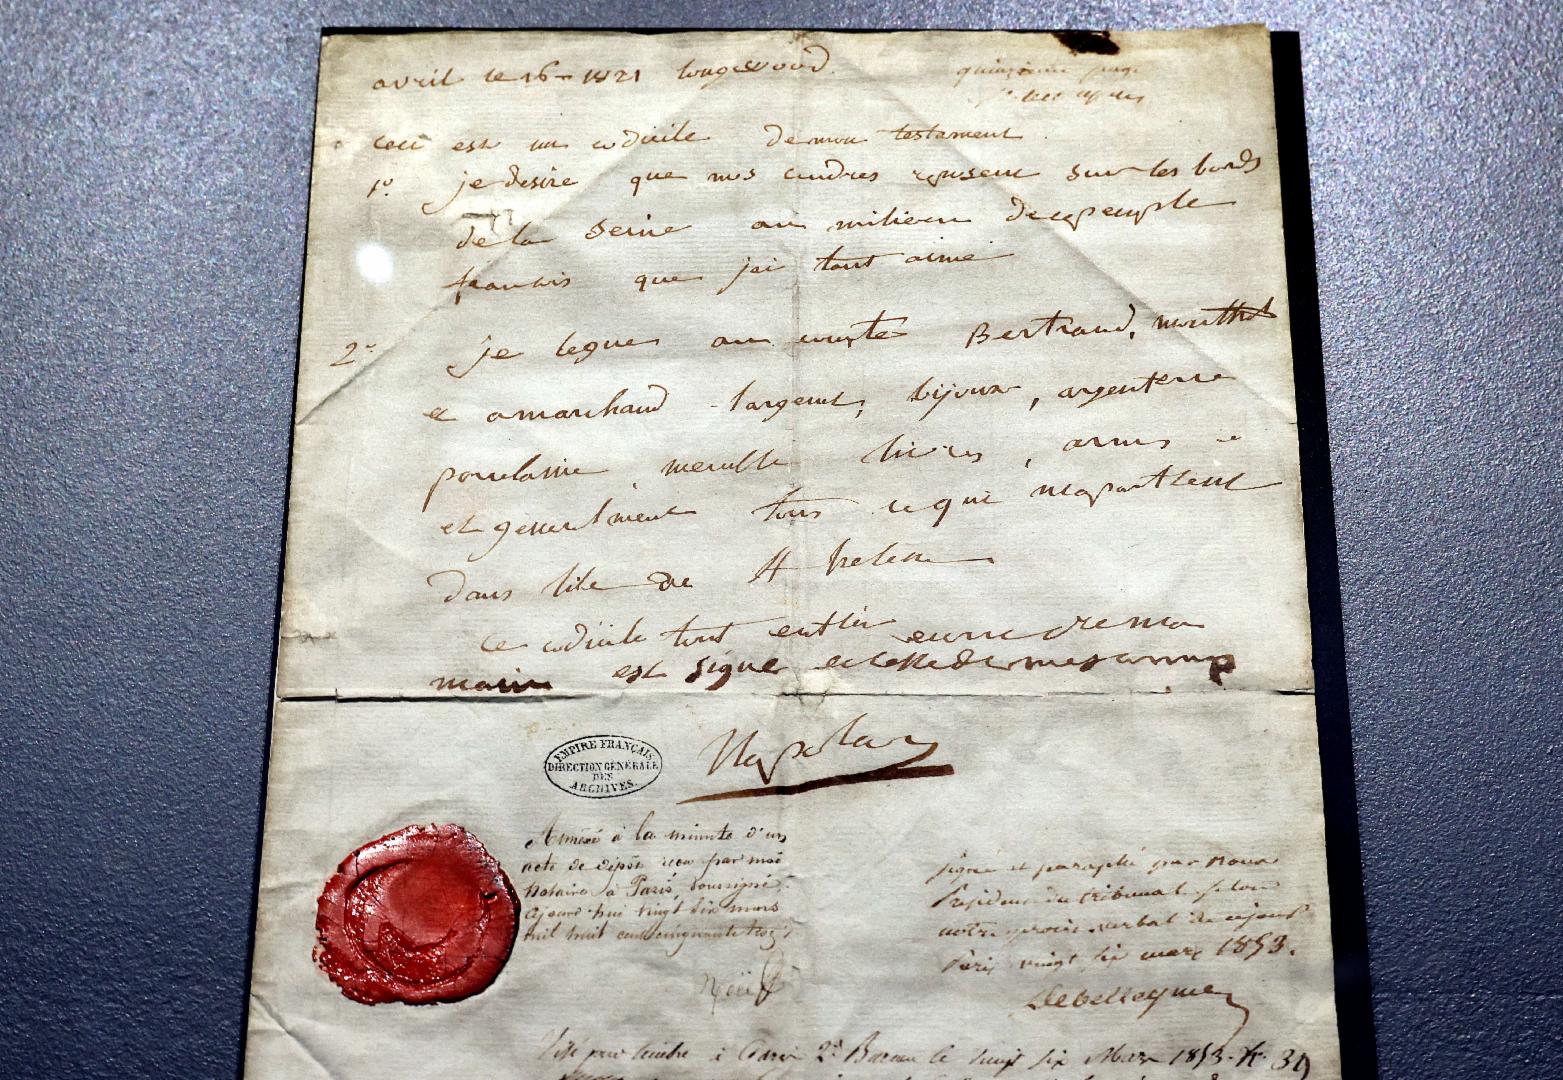 avril le 16 1821 longwood
quinzième page
ceci est un codicile de mon testament
1º je desire que mes cendres reposent sur les bords
de la Seine au milieu de ce peuple
francais que jai tant aimé
2º je legue au comte Bertrand, montholon
et a marchand largent, bijoux, argenterie
porcelaine, meuble livres, armes
et generalment tous ce qui mapartient
dans lile de St helene
ce codicile tout entier ecrit de ma
main est signé et cellé de mes armes
Napoleon
EMPIRE FRANÇAIS
DIRECTION GÉNÉRALE
DES
ARCHIVES.
Annexé à la minute d'un
acte de dépôt reçu par moi
notaire à Paris, soussigné,
aujourd'hui vingt six mars
mil huit cent cinquante trois
signé et paraphé par nous
Président du tribunal selon
notre procès verbal de ce jour
Paris vingt six mars 1853.
Debelleyme
Visé pour timbre à Paris 2e Bureau le vingt six Mars 1853.